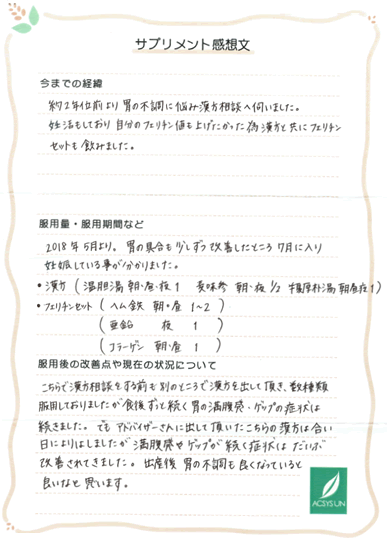 サプリメント感想文
今までの経緯
約2年位前より胃の不調に悩み漢方相談へ伺いました。
妊活もしており自分のフェリチン値も上げたかった為漢方と共にフェリチン
セットも飲みました。
服用量・服用期間など
2018年5月より。胃の具合も少しずつ改善したところ7月に入り
妊娠している事が分かりました。
・漢方（温胆湯 朝・昼・夜 1 麦味参 朝・夜 1/2 攝厚朴湯 朝昼夜1）
・フェリチンセット（ヘム鉄 朝・昼 1~2）
（亜鉛 夜 1）
（コラーゲン 朝・昼 1）
服用後の改善点や現在の状況について
こちらで漢方相談をする前も別のところで漢方を出して頂き、数種類
服用しておりましたが食後ずっと続く胃の満腹感・ゲップの症状は
続きました。でもアドバイザーさんに出して頂いたこちらの漢方は合い
日によりはしましたが満腹感やゲップが続く症状はだいぶ
改善されてきました。出産後胃の不調も良くなっていると
良いなと思います。
ACSYSUN